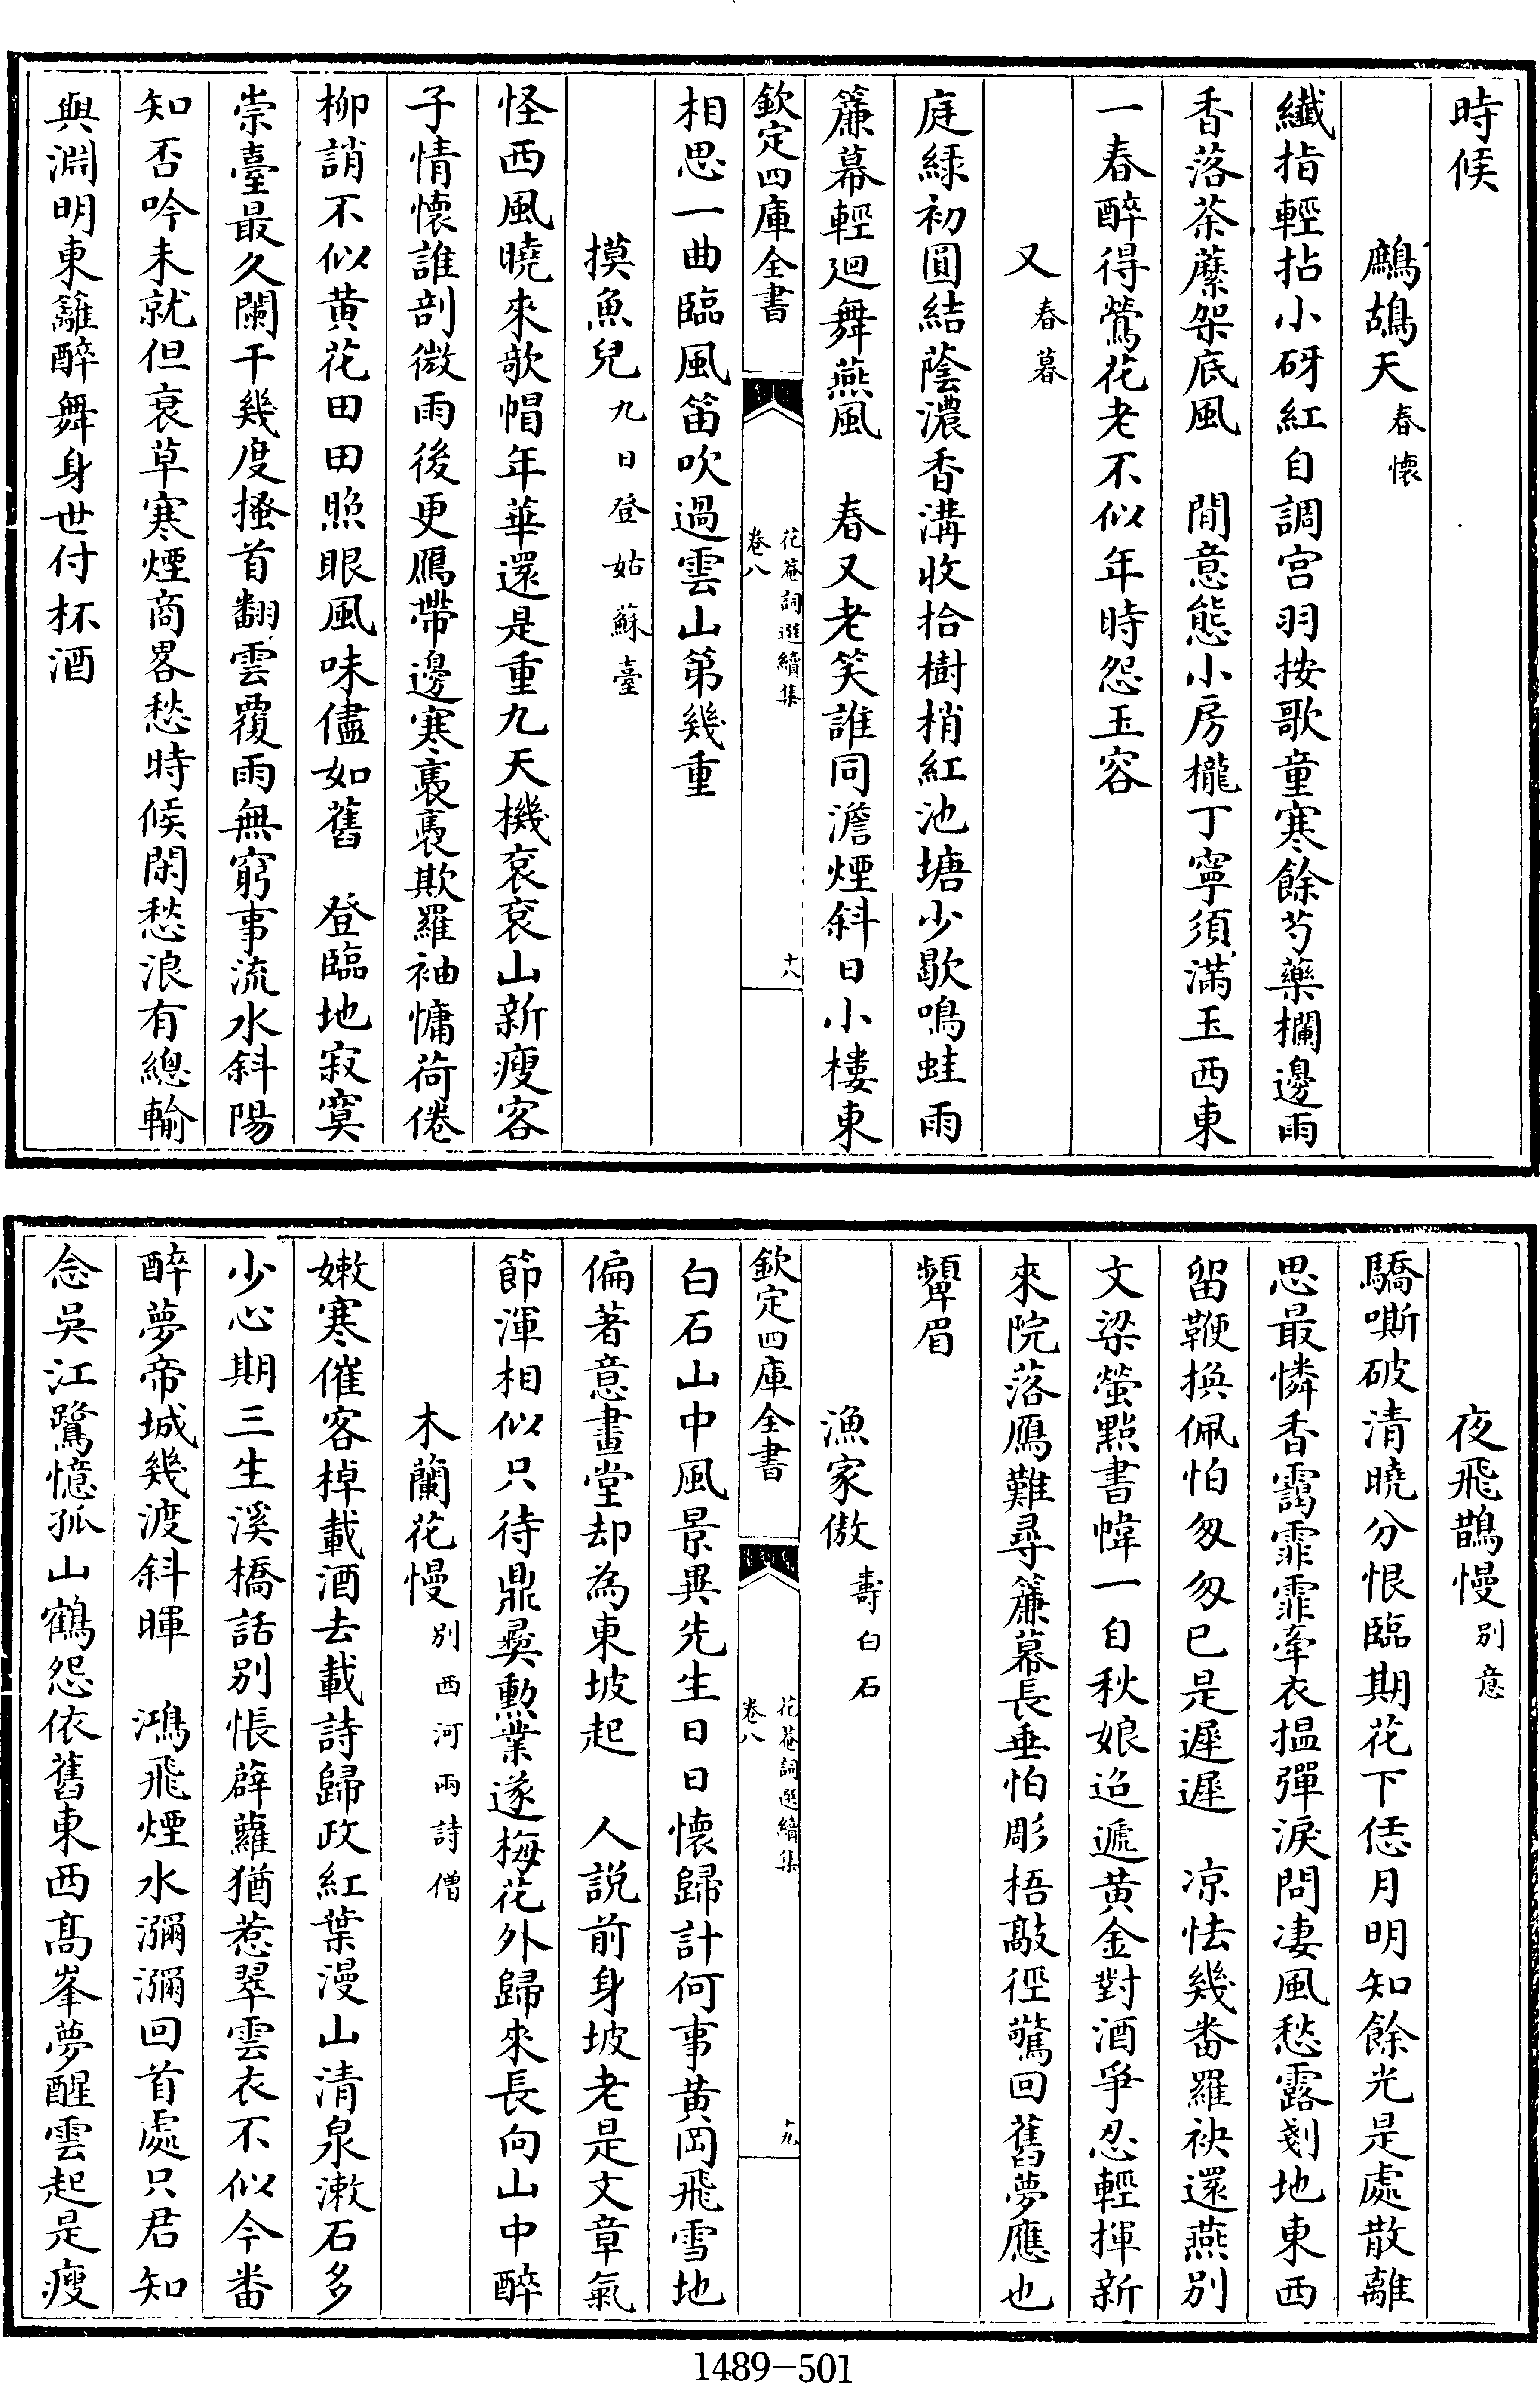 時候
鷓鴣天春懷
纎指輕拈小砑紅自調宮羽按歌童寒餘芍藥欄邊雨
香落荼蘼架底風　閒意態小房櫳丁寧須滿玉西東
一春醉得鶯花老不似年時怨玉容
又春暮
庭緑初圓結蔭濃香溝收拾樹梢紅池塘少歇鳴蛙雨
簾幕輕廻舞燕風　春又老笑誰同澹煙斜日小樓東
欽定四庫全書
花菴詞選續集
卷八
十八
相思一曲臨風笛吹過雲山第幾重
摸魚兒九日登姑蘇臺
怪西風曉來欹帽年華還是重九天機衮衮山新瘦客
子情懷誰剖微雨後更鴈帶邊寒裊裊欺羅袖慵荷倦
柳誚不似黄花田田照眼風味儘如舊　登臨地寂寞
崇臺最久闌干幾度搔首翻雲覆雨無窮事流水斜陽
知否吟未就但衰草寒煙商畧愁時候閑愁浪有總輸
與淵明東籬醉舞身世付杯酒
夜飛鵲慢别意
驕嘶破清曉分恨臨期花下恁月明知餘光是處散離
思最憐香靄霏霏牽衣揾彈淚問凄風愁露剗地東西
留鞭換佩怕匆匆已是遲遲　凉怯幾畨羅袂還燕别
文梁螢點書幃一自秋娘迢遞黄金對酒爭忍輕揮新
來院落鴈難尋簾幕長垂怕彫梧敲徑驚回舊夢應也
顰眉
漁家傲壽白石
欽定四庫全書
花菴詞選續集
卷八
十九
白石山中風景異先生日日懷歸計何事黄岡飛雪地
偏著意畫堂却為東坡起　人説前身坡老是文章氣
節渾相似只待鼎彛勲業遂梅花外歸來長向山中醉
木蘭花慢别西河兩詩僧
嫩寒催客棹載酒去載詩歸政紅葉漫山清泉漱石多
少心期三生溪橋話别悵薜蘿猶惹翠雲衣不似今畨
醉夢帝城幾渡斜暉　鴻飛煙水瀰瀰回首處只君知
念吳江鷺憶孤山鶴怨依舊東西髙峯夢醒雲起是瘦
1489-501